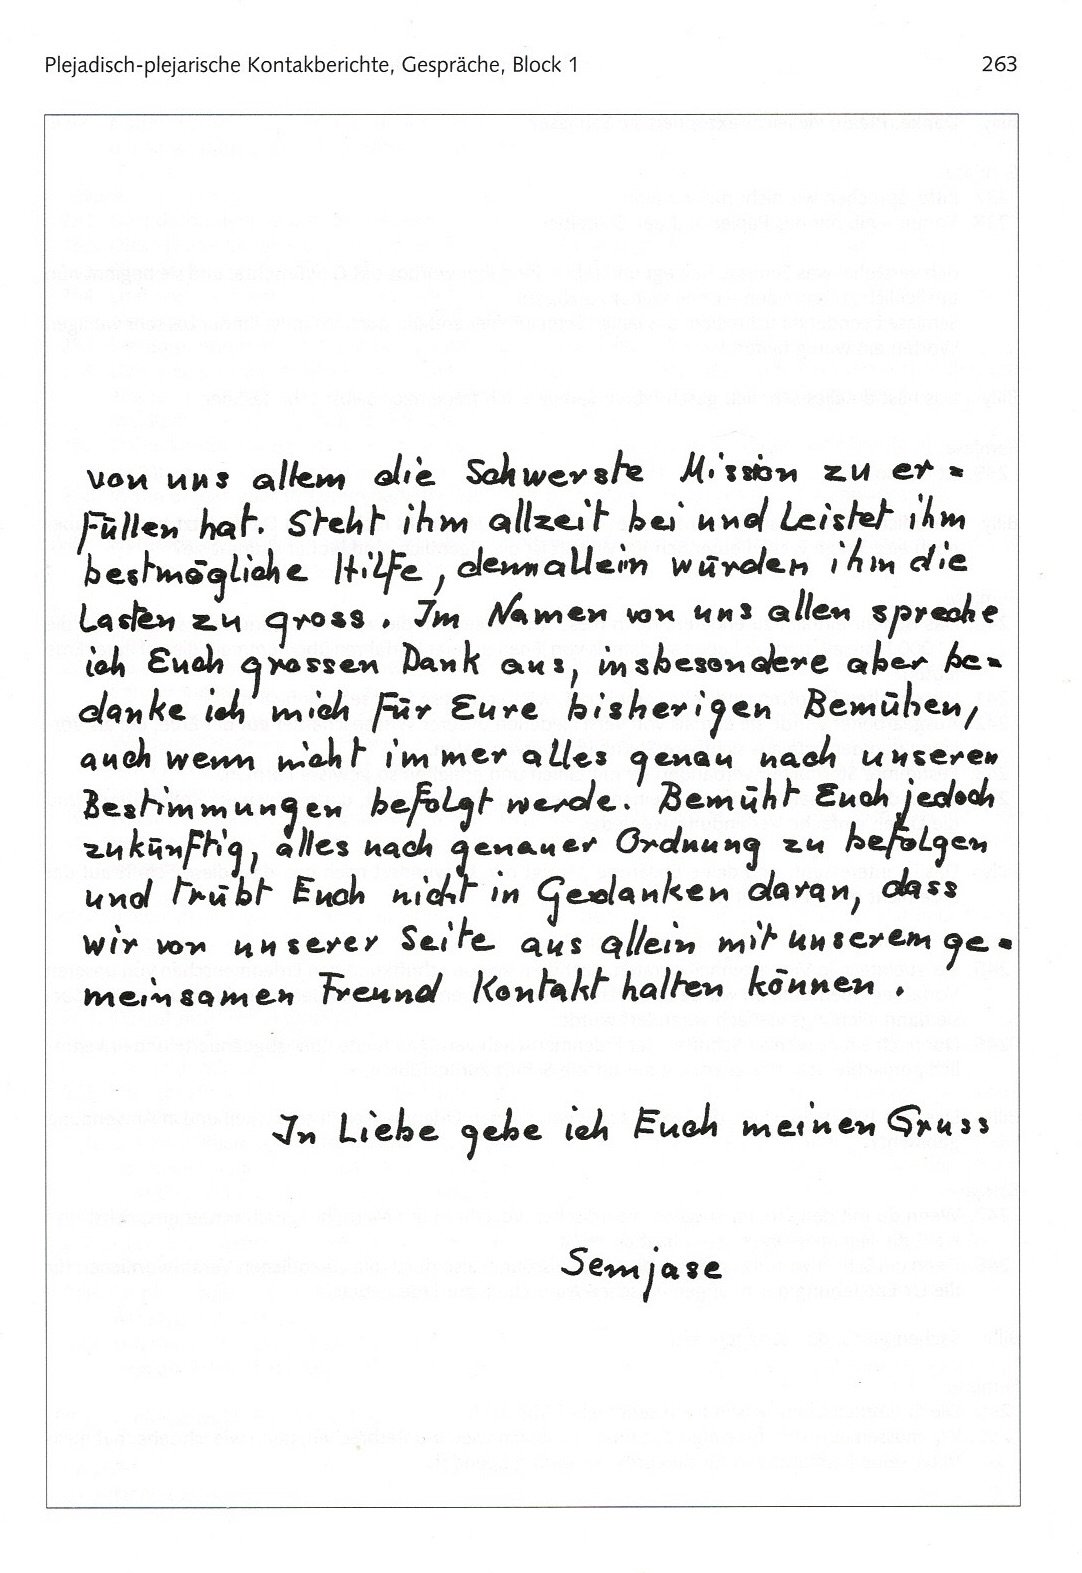 Plejadisch-plejarische Kontakberichte, Gespräche, Block 1 263
von uns allem die Schwerste Mission zu er=
füllen hat. Steht ihm allzeit bei und Leistet ihm
bestmögliche Hilfe, denn allein würden ihm die
Lasten zu gross. Im Namen von uns allen spreche
ich Euch grossen Dank aus, insbesondere aber be=
danke ich mich für Eure bisherigen Bemühen,
auch wenn nicht immer alles genau nach unseren
Bestimmungen befolgt werde. Bemüht Euch jedoch
zukünftig, alles nach genauer Ordnung zu befolgen
und trübt Euch nicht in Gedanken daran, dass
wir von unserer Seite aus allein mit unserem ge=
meinsamen Freund Kontakt halten können.
In Liebe gebe ich Euch meinen Gruss
Semjase